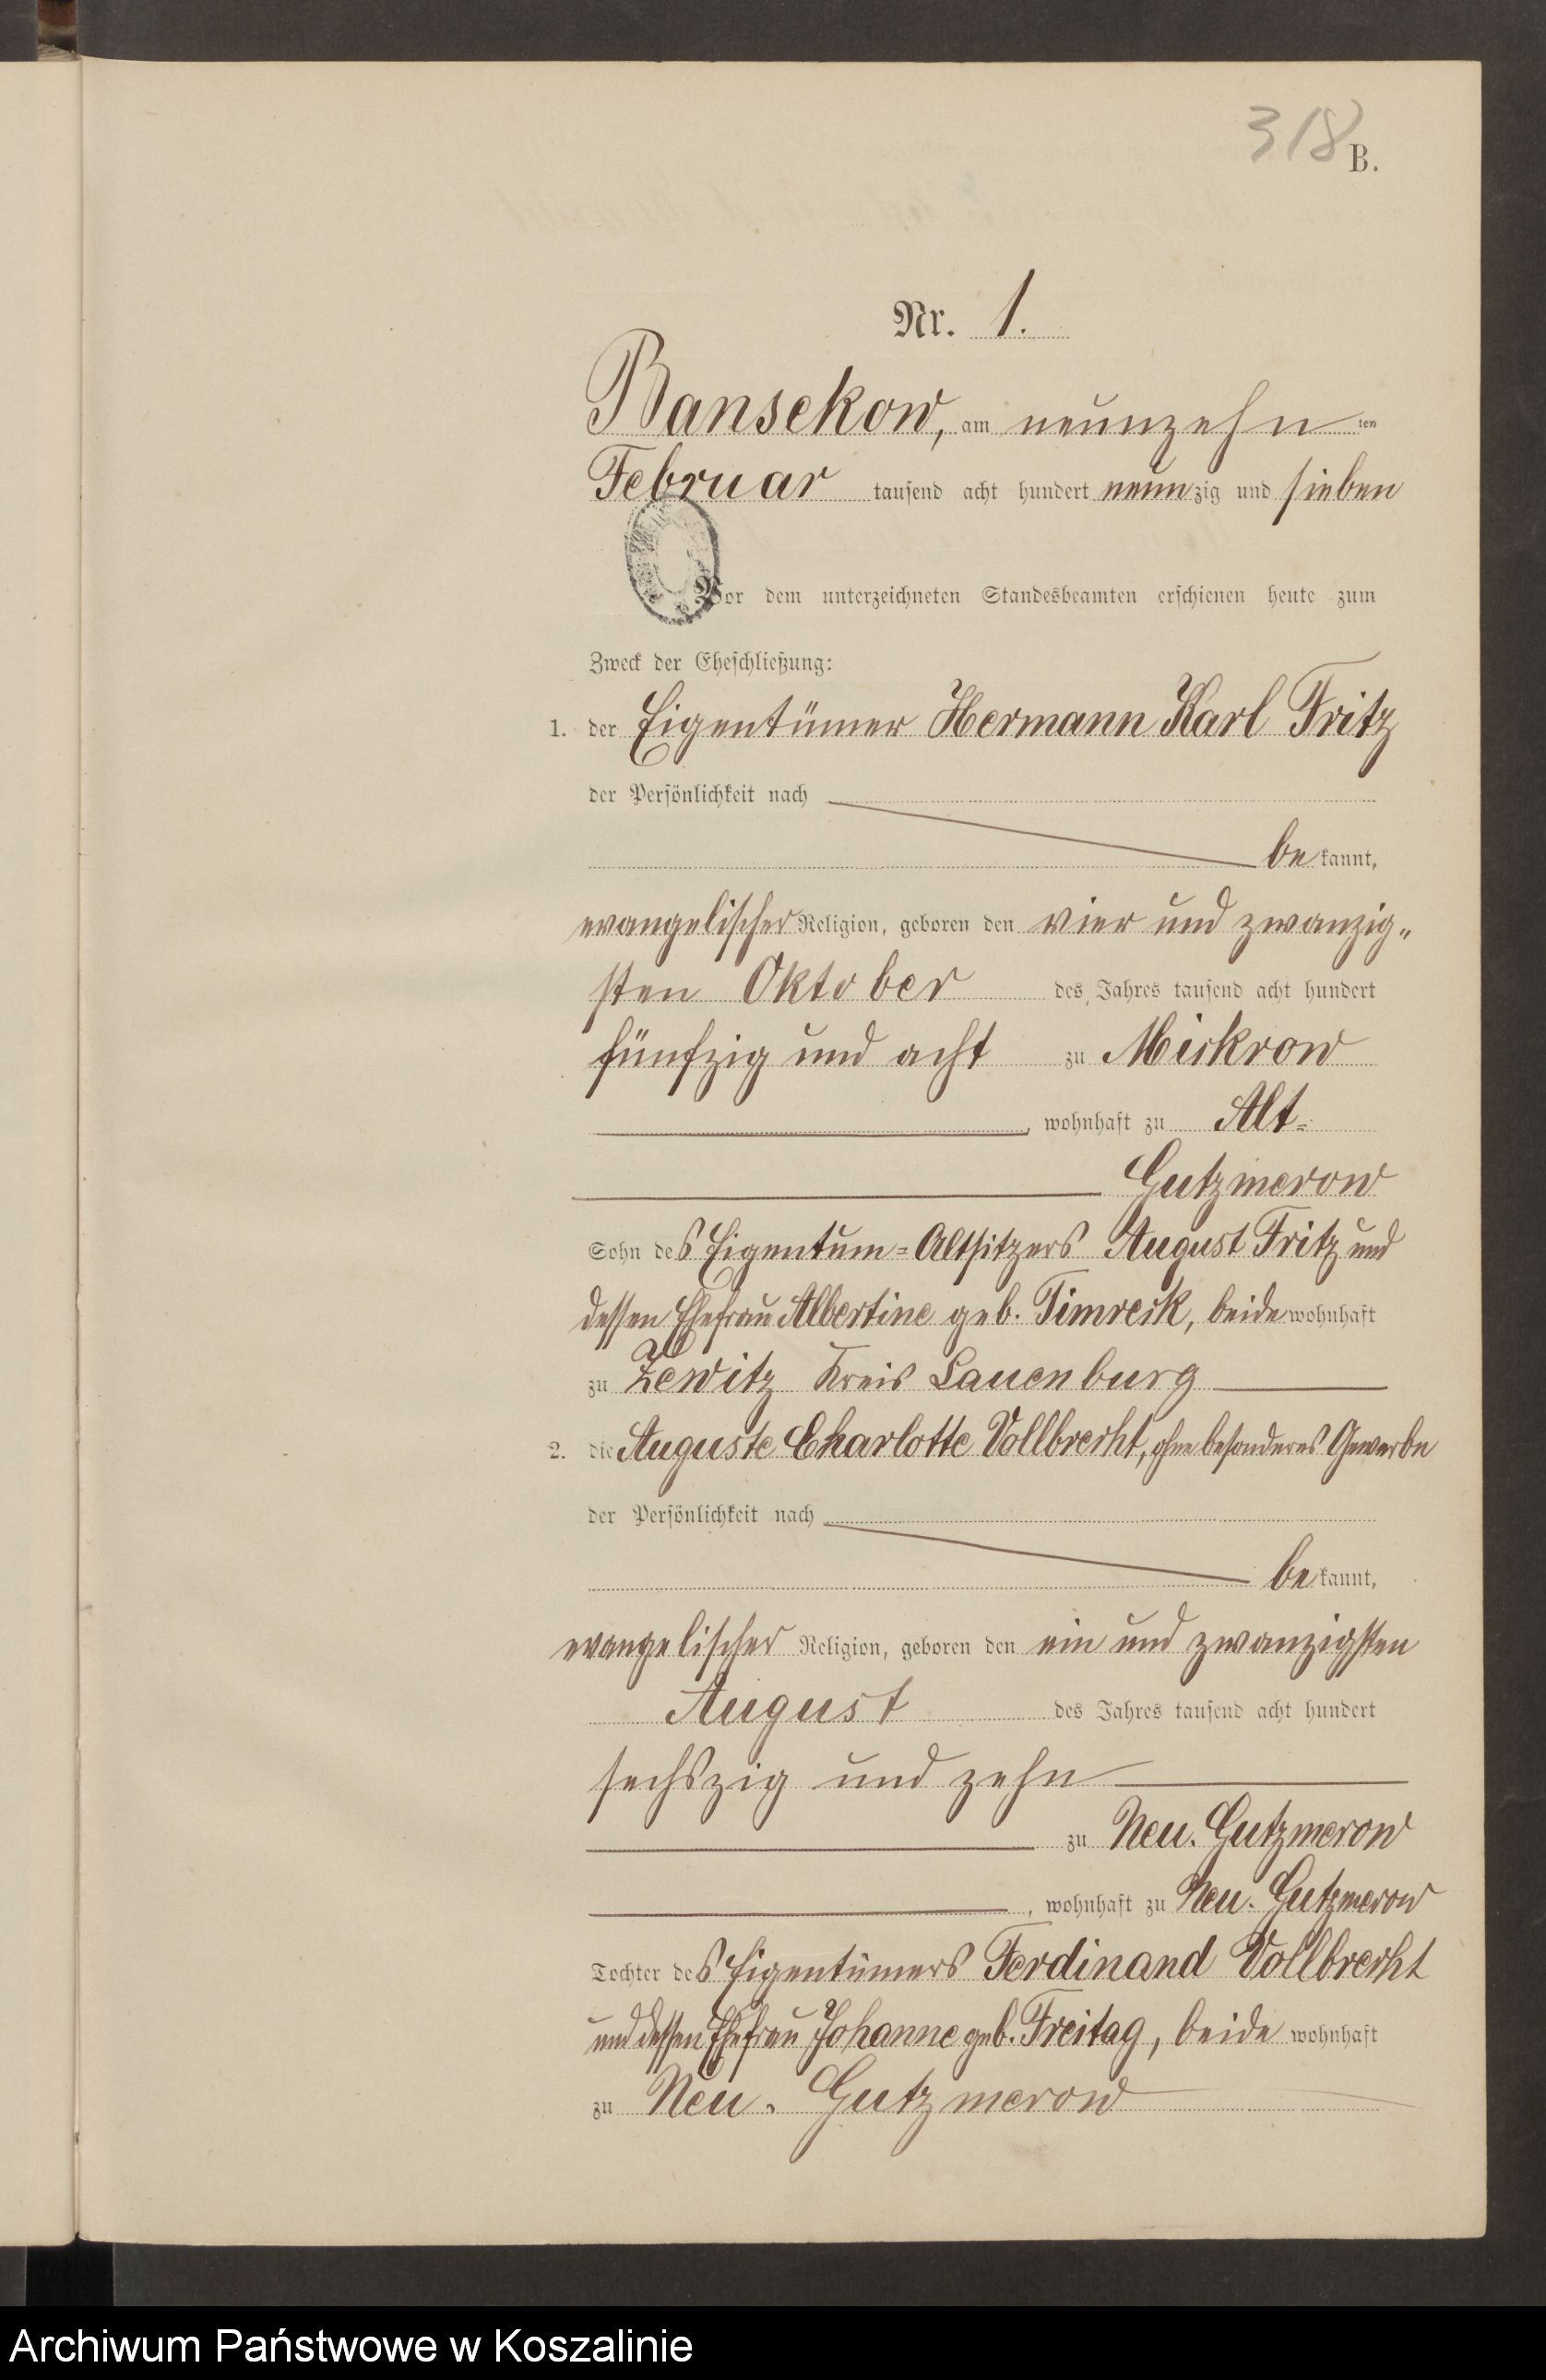 318 B.
Nr. 1.
Bansekow, am neunzehn ten
Februar tausend acht hundert neunzig und sieben
Vor dem unterzeichneten Standesbeamten erschienen heute zum
Zweck der Eheschließung:
1. der Eigentümer Hermann Karl Fritz
der Persönlichkeit nach
bekannt,
evangelischer Religion, geboren den vier und zwanzig„
sten Oktober des Jahres tausend acht hundert
fünfzig und acht zu Mickrow
, wohnhaft zu Alt=
Gutzmerow
Sohn des Eigentum=Altsitzers August Fritz und
dessen Ehefrau Albertine geb. Timreck, beide wohnhaft
zu Zewitz Kreis Lauenburg
2. die Auguste Charlotte Vollbrecht, ohne besonderes Gewerbe
der Persönlichkeit nach
bekannt,
evangelischer Religion, geboren den ein und zwanzigsten
August des Jahres tausend acht hundert
sechszig und zehn
zu Neu. Gutzmerow
, wohnhaft zu Neu. Gutzmerow
Tochter des Eigentümers Ferdinand Vollbrecht
und dessen Ehefrau Johanne geb. Freitag, beide wohnhaft
zu Neu. Gutzmerow
Archiwum Państwowe w Koszalinie